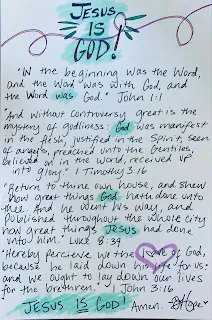 JESUS
IS
GOD!
"IN the beginning was the Word,
and the Word was with God, and
the Word was God." John 1:1
"And without controversy great is the
mystery of godliness: God was manifest
in the flesh, justified in the Spirit, seen
of angels, preached unto the Gentiles,
believed on in the world, received up
into glory." 1 Timothy 3:16
"Return to thine own house, and shew
how great things God hath done unto
thee. And he went his way, and
published throughout the whole city
how great things JESUS had done
unto him." Luke 8:39
"Hereby perceive we the love of God,
because he laid down his life for us:
and we ought to lay down our lives
for the brethren." 1 John 3:16
JESUS IS GOD! Amen.